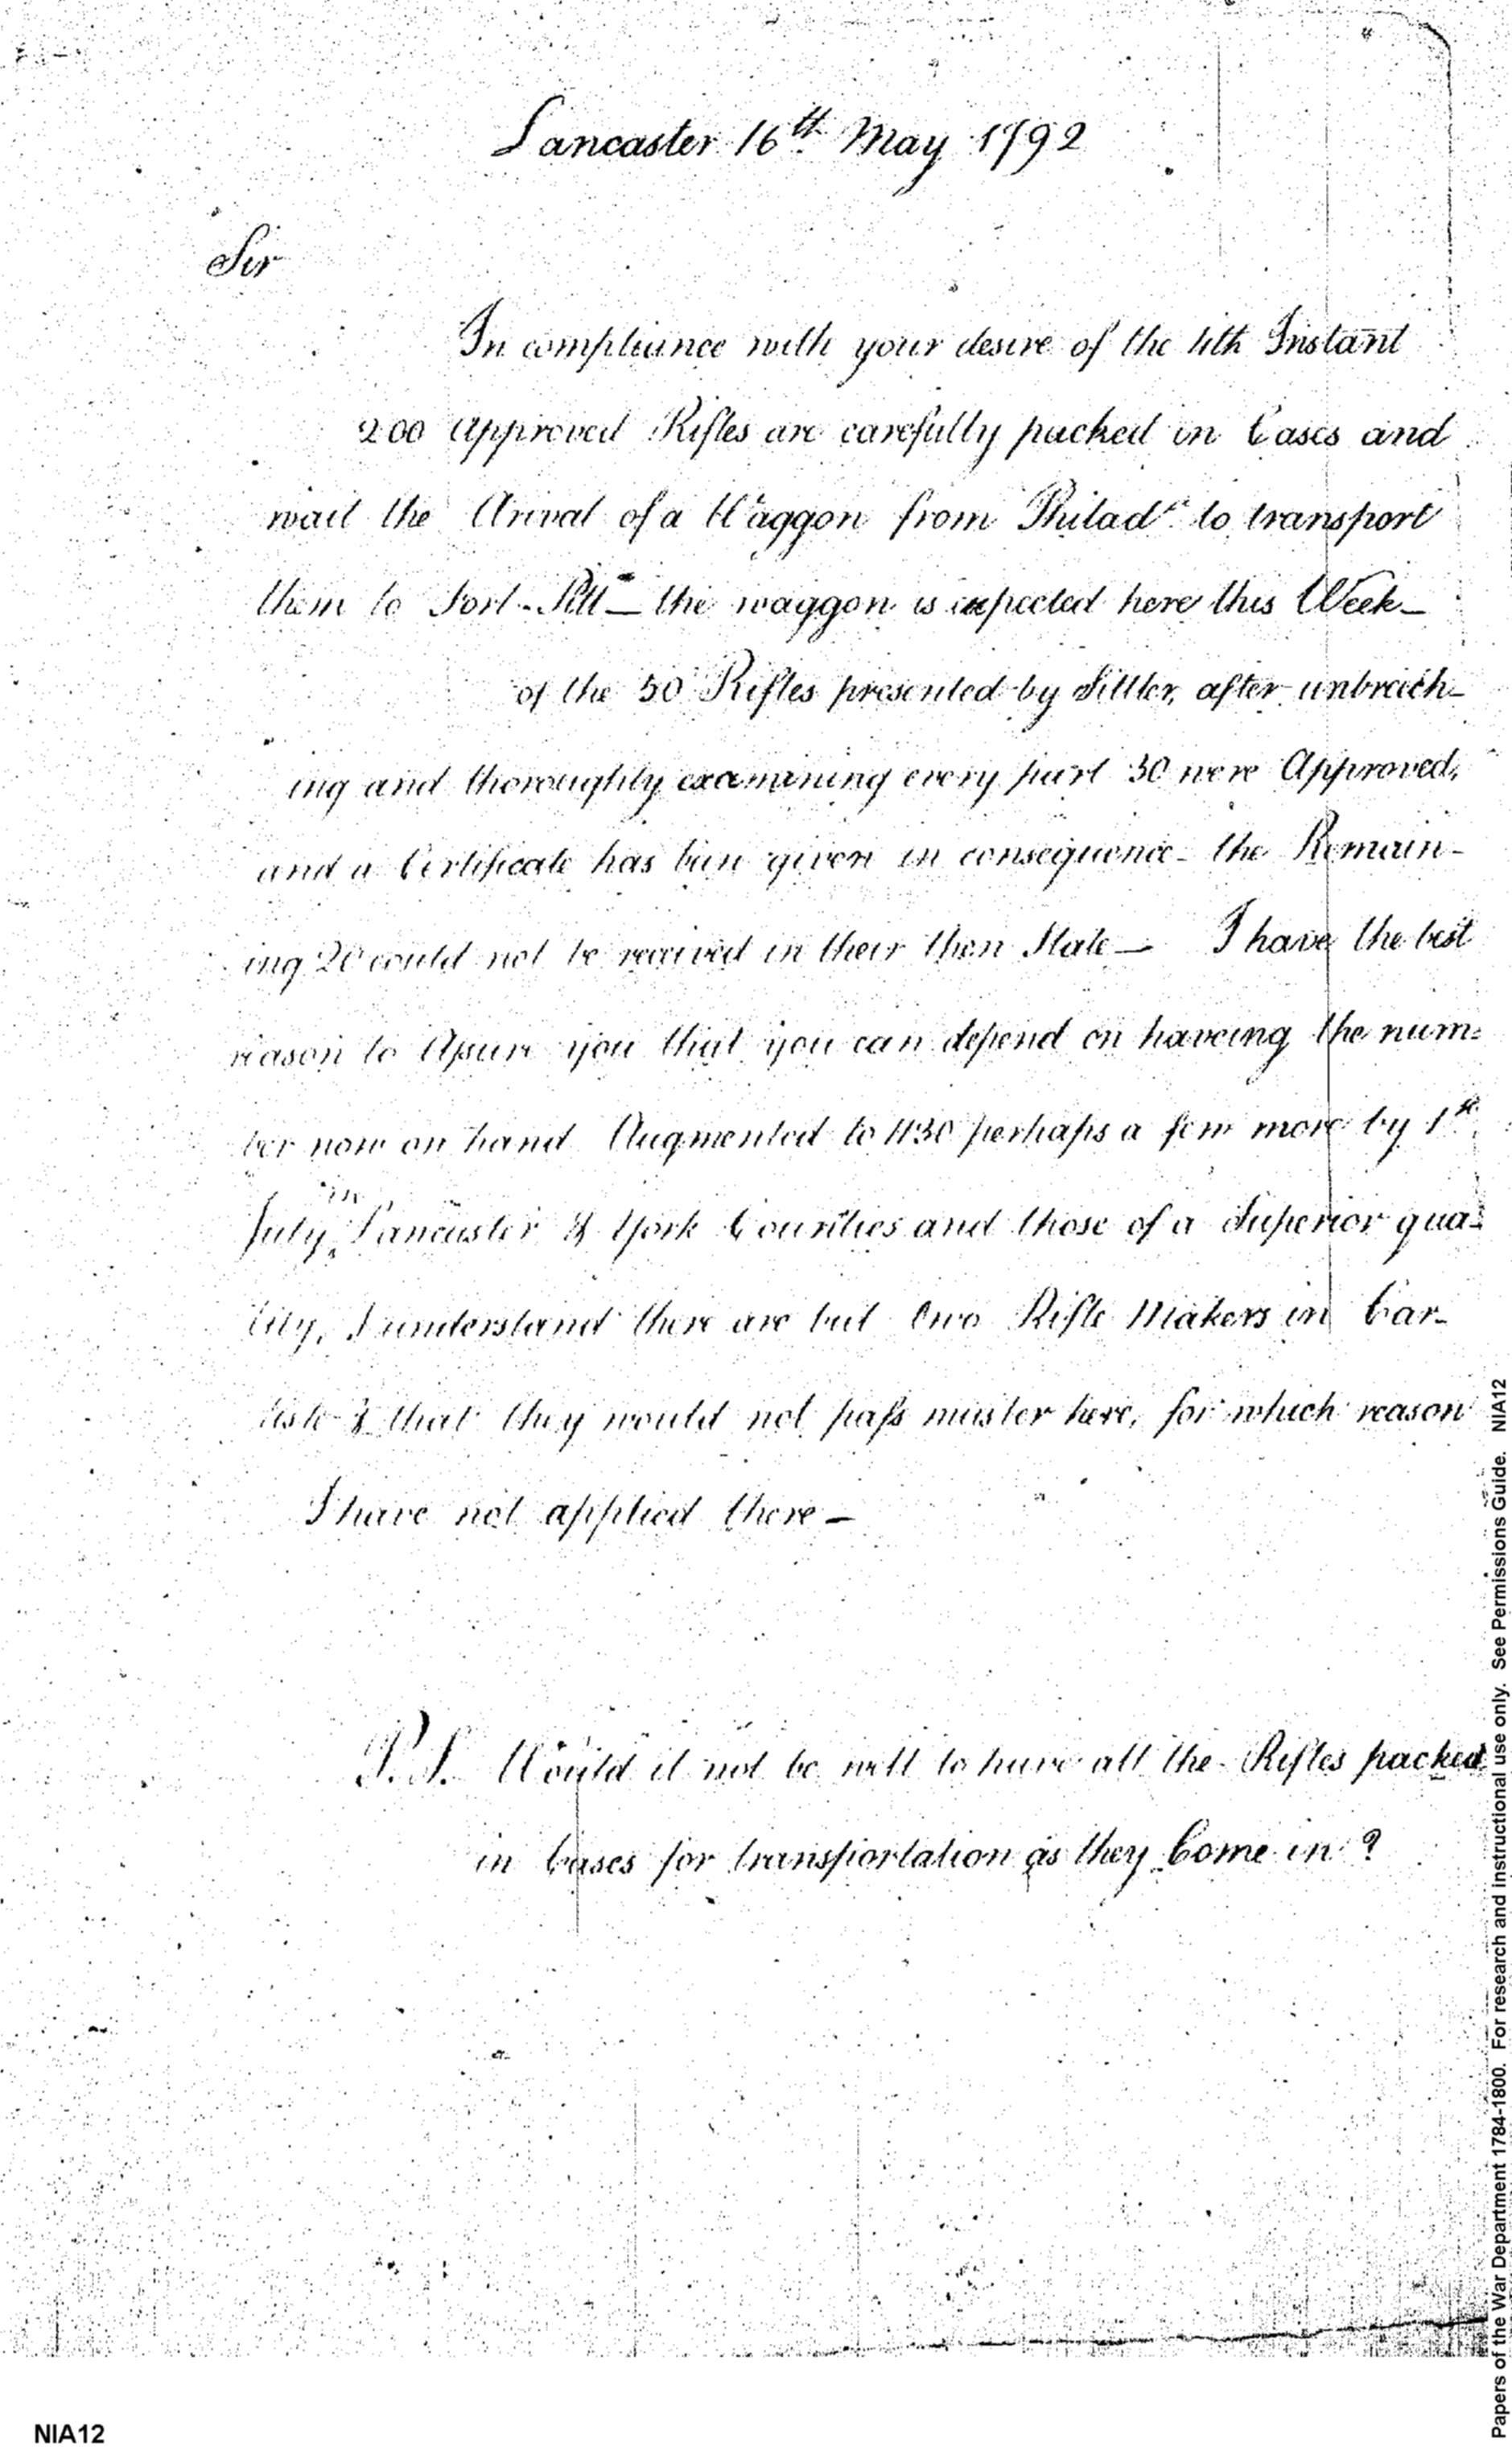 Lancaster 16th May 1792
Sir
In compliance with your desire of the 4th Instant
200 Approved Rifles are carefully packed in Cases and
wait the Arival of a Waggon from Philada to transport
them to Fort-Pitt — the waggon is expected here this Week —
of the 50 Rifles presented by Fittler, after unbreich-
ing and thoroughly examining every part 30 were Approved,
and a Certificate has been given in consequence - the Remain-
ing 20 could not be received in their then State — I have the best
reason to Assure you that you can depend on haveing the num=
ber now on hand Augmented to 430 perhaps a few more by 1st
July in Lancaster & York Counties and those of a Superior qua=
lity, I understand there are but two Rifle Makers in Car-
lisle & that they would not pass muster here, for which reason
I have not applied there —
P.S. Would it not be well to have all the Rifles packed
in Cases for transportation as they Come in ?
NIA12
Papers of the War Department 1784-1800. For research and instructional use only. See Permissions Guide. NIA12